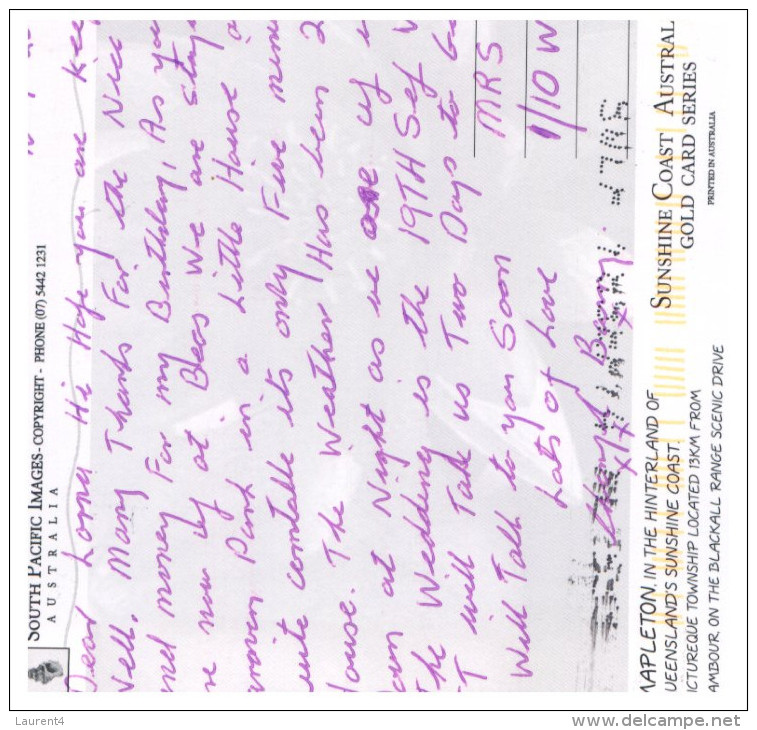 SOUTH PACIFIC IMAGES - COPYRIGHT - PHONE (07) 5442 1231
AUSTRALIA
Dear Lorna Hi Hope you are kee
Well. Many Thanks For the Nice
and money For my Birthday, As you
re now up at Beas We are stay
aravan Park in a Little House a
uite comtable its only Five minu
House. The Weather Has been 2
own at Night as we are up i
The Wedding is the 19TH Sef W
IT will Take us Two Days to Ge
Will Talk to you Soon
Lots of Love
XXXX
MRS
1/10 W
MAPLETON, IN THE HINTERLAND OF
UEENSLAND'S SUNSHINE COAST.
ICTUREQUE TOWNSHIP LOCATED 13KM FROM
AMBOUR ON THE BLACKALL RANGE SCENIC DRIVE
SUNSHINE COAST AUSTRAL
GOLD CARD SERIES
PRINTED IN AUSTRALIA
Laurent4
www.delcampe.net